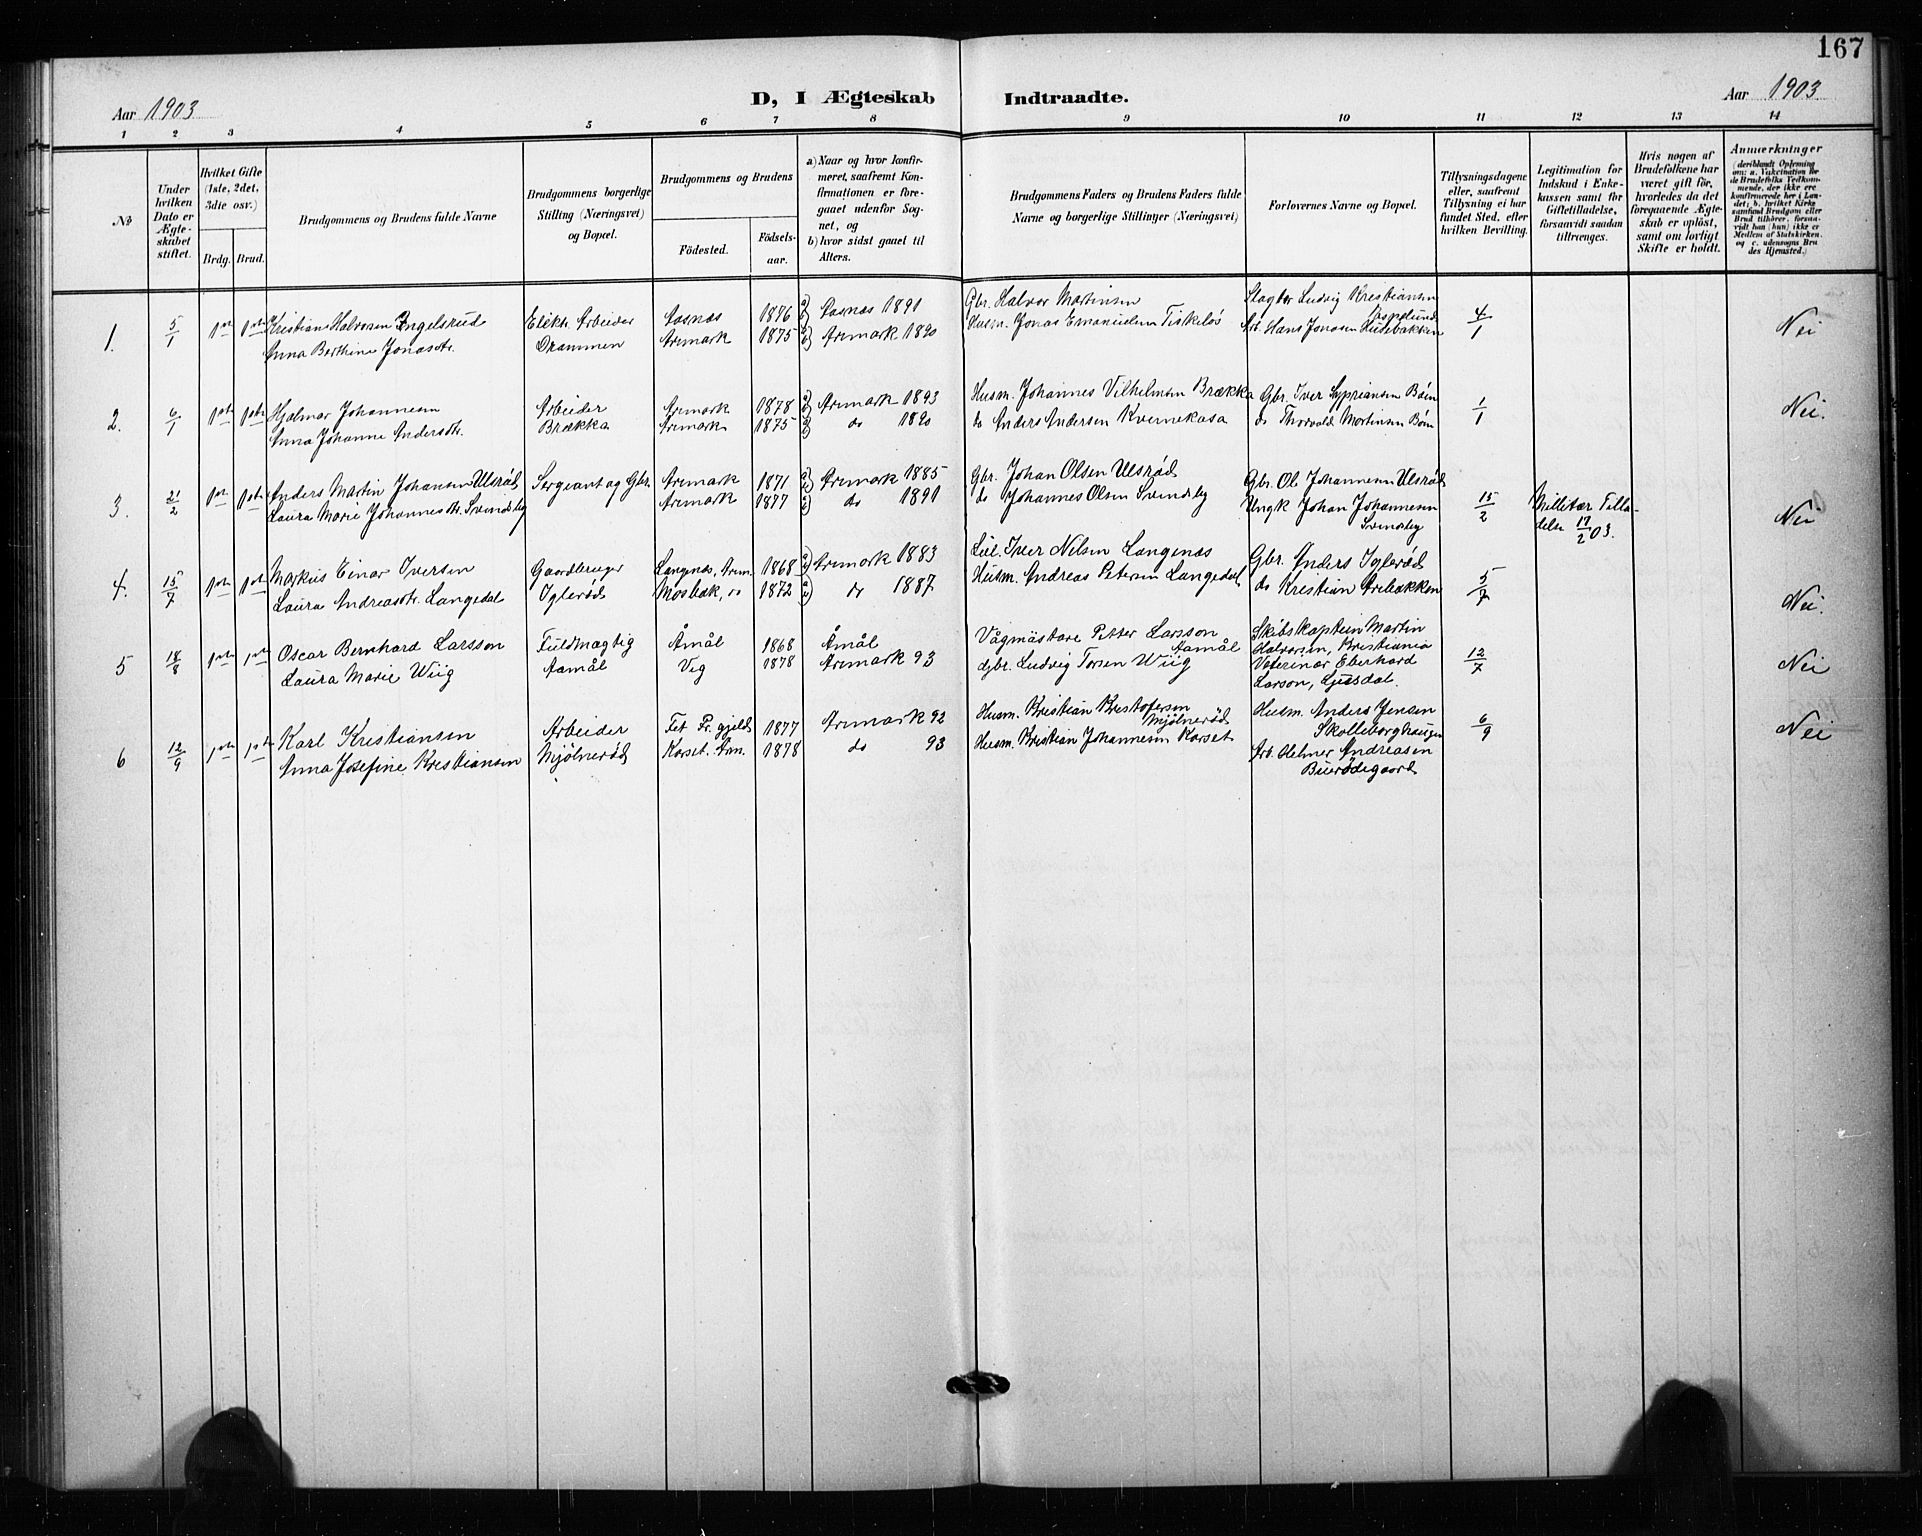 167
Aar 1903
D, I Ægteskab Indtraadte.
Aar 1903
1 2 3 4 5 6 7 8 9 10 11 12 13 14
No
Under hvilken Dato er Ægteskabet stiftet.
Hvilket Gifte (1ste, 2det, 3die osv.)
Brdg. Brud.
Brudgommens og Brudens fulde Navne
Brudgommens borgerlige Stilling (Næringsvei) og Bopæl.
Brudgommens og Brudens
Födested. Födselsaar.
a) Naar og hvor konfirmeret, saafremt Konfirmationen er foregaaet udenfor Sognet, og
b) hvor sidst gaaet til Alters.
Brudgommens Faders og Brudens Faders fulde Navne og borgerlige Stillinger (Næringsvei)
Forlovernes Navne og Bopæl.
Tillysningsdagene eller, saafremt Tillysning ei har fundet Sted, efter hvilken Bevilling.
Legitimation for Indskud i Enkekassen samt for Giftetilladelse, forsaavidt saadan tiltrænges.
Hvis nogen af Brudefolkene har været gift för, hvorledes da det foregaaende Ægteskab er oplöst, samt om lovligt Skifte er holdt.
Anmærkninger
(deriblandt Oplysning om: a. Vakcination for de Brudefolks Vedkommende, der ikke ere konfirmerede her i Landet; b. hvilket Kirkesamfund Brudgom eller Brud tilhörer, forsaavidt han (hun) ikke er Medlem af Statskirken, og c. udensogns Brudes Hjemsted.)
1. 5/1 1ste 1ste Kristian Halvorsen Engelsrud Elektr. Arbeider Aasnæs 1876 a) Aasnæs 1891 Gbr. Halvor Martinsen Slagter Ludvig Kristiansen Asplund 4/1 Nei
Anna Berthine Jonasdr. Drammen Aremark 1875 Aremark 1890 Husm. Jonas Emanuelsen Fiskeløs Arb. Hans Jonasen Hudebakken
2. 6/1 1ste 1ste Hjalmar Johannesen Arbeider Aremark 1878 Aremark 1893 Husm. Johannes Vilhelmsen Brække Gbr. Iver Sypriansen Bøen 1/1 Nei.
Anna Johanne Andersdtr. Brække Aremark 1875 do 1890 do Anders Andersen Kvernekasa do Thorvald Martinsen Bøen
3. 21/2 1ste 1ste Anders Martin Johansen Ulsrød Sergeant og Gbr. Aremark 1871 Aremark 1885 Gbr. Johan Olsen Ulsrød Gbr. Ole Johannesen Ulsrød 15/2 Militær Tilladelse 17/2 03. Nei
Laura Marie Johannesdtr. Svendsby Aremark 1877 do 1891 do Johannes Olsen Svendsby Ungk Johan Johannesen Svendsby
4. 15/7 1ste 1ste Markus Einar Iversen Gaardbruger Langenæs, Arem. 1868 Aremark 1883 Iver Nilsen Langenæs Gbr. Anders Iglerød 5/7 Nei.
Laura Andreasdtr. Langedal Iglerød Mosbæk, do 1872 do 1887 Husm. Andreas Petersen Langedal do Kristian Arebækken
5 18/8 1ste 1ste Oscar Bernhard Larsson Fuldmægtig Åmål 1868 Åmål Vågmästare Petter Larsson Aamål Skibskaptein Martin Halvorsen, Kristiania 12/7 Nei
Laura Marie Wiig Aamål Vig 1878 Aremark 93 Gbr. Ludvig Torsen Wiig Veterinær Eberhard Larson, Ljusdal.
6 12/9 1ste 1ste Karl Kristiansen Arbeider Fet Pr.gjeld 1877 Aremark 92 Husm. Kristian Kristofersen Mjølnerød Husm. Anders Jensen Skolleborghaugen 6/9 Nei
Anna Josefine Kristiansen Mjølnerød Korset. Arm. 1878 do 93 Husm. Kristian Johannesen Korset Arb. Helmer Andreasen Buerødegaard